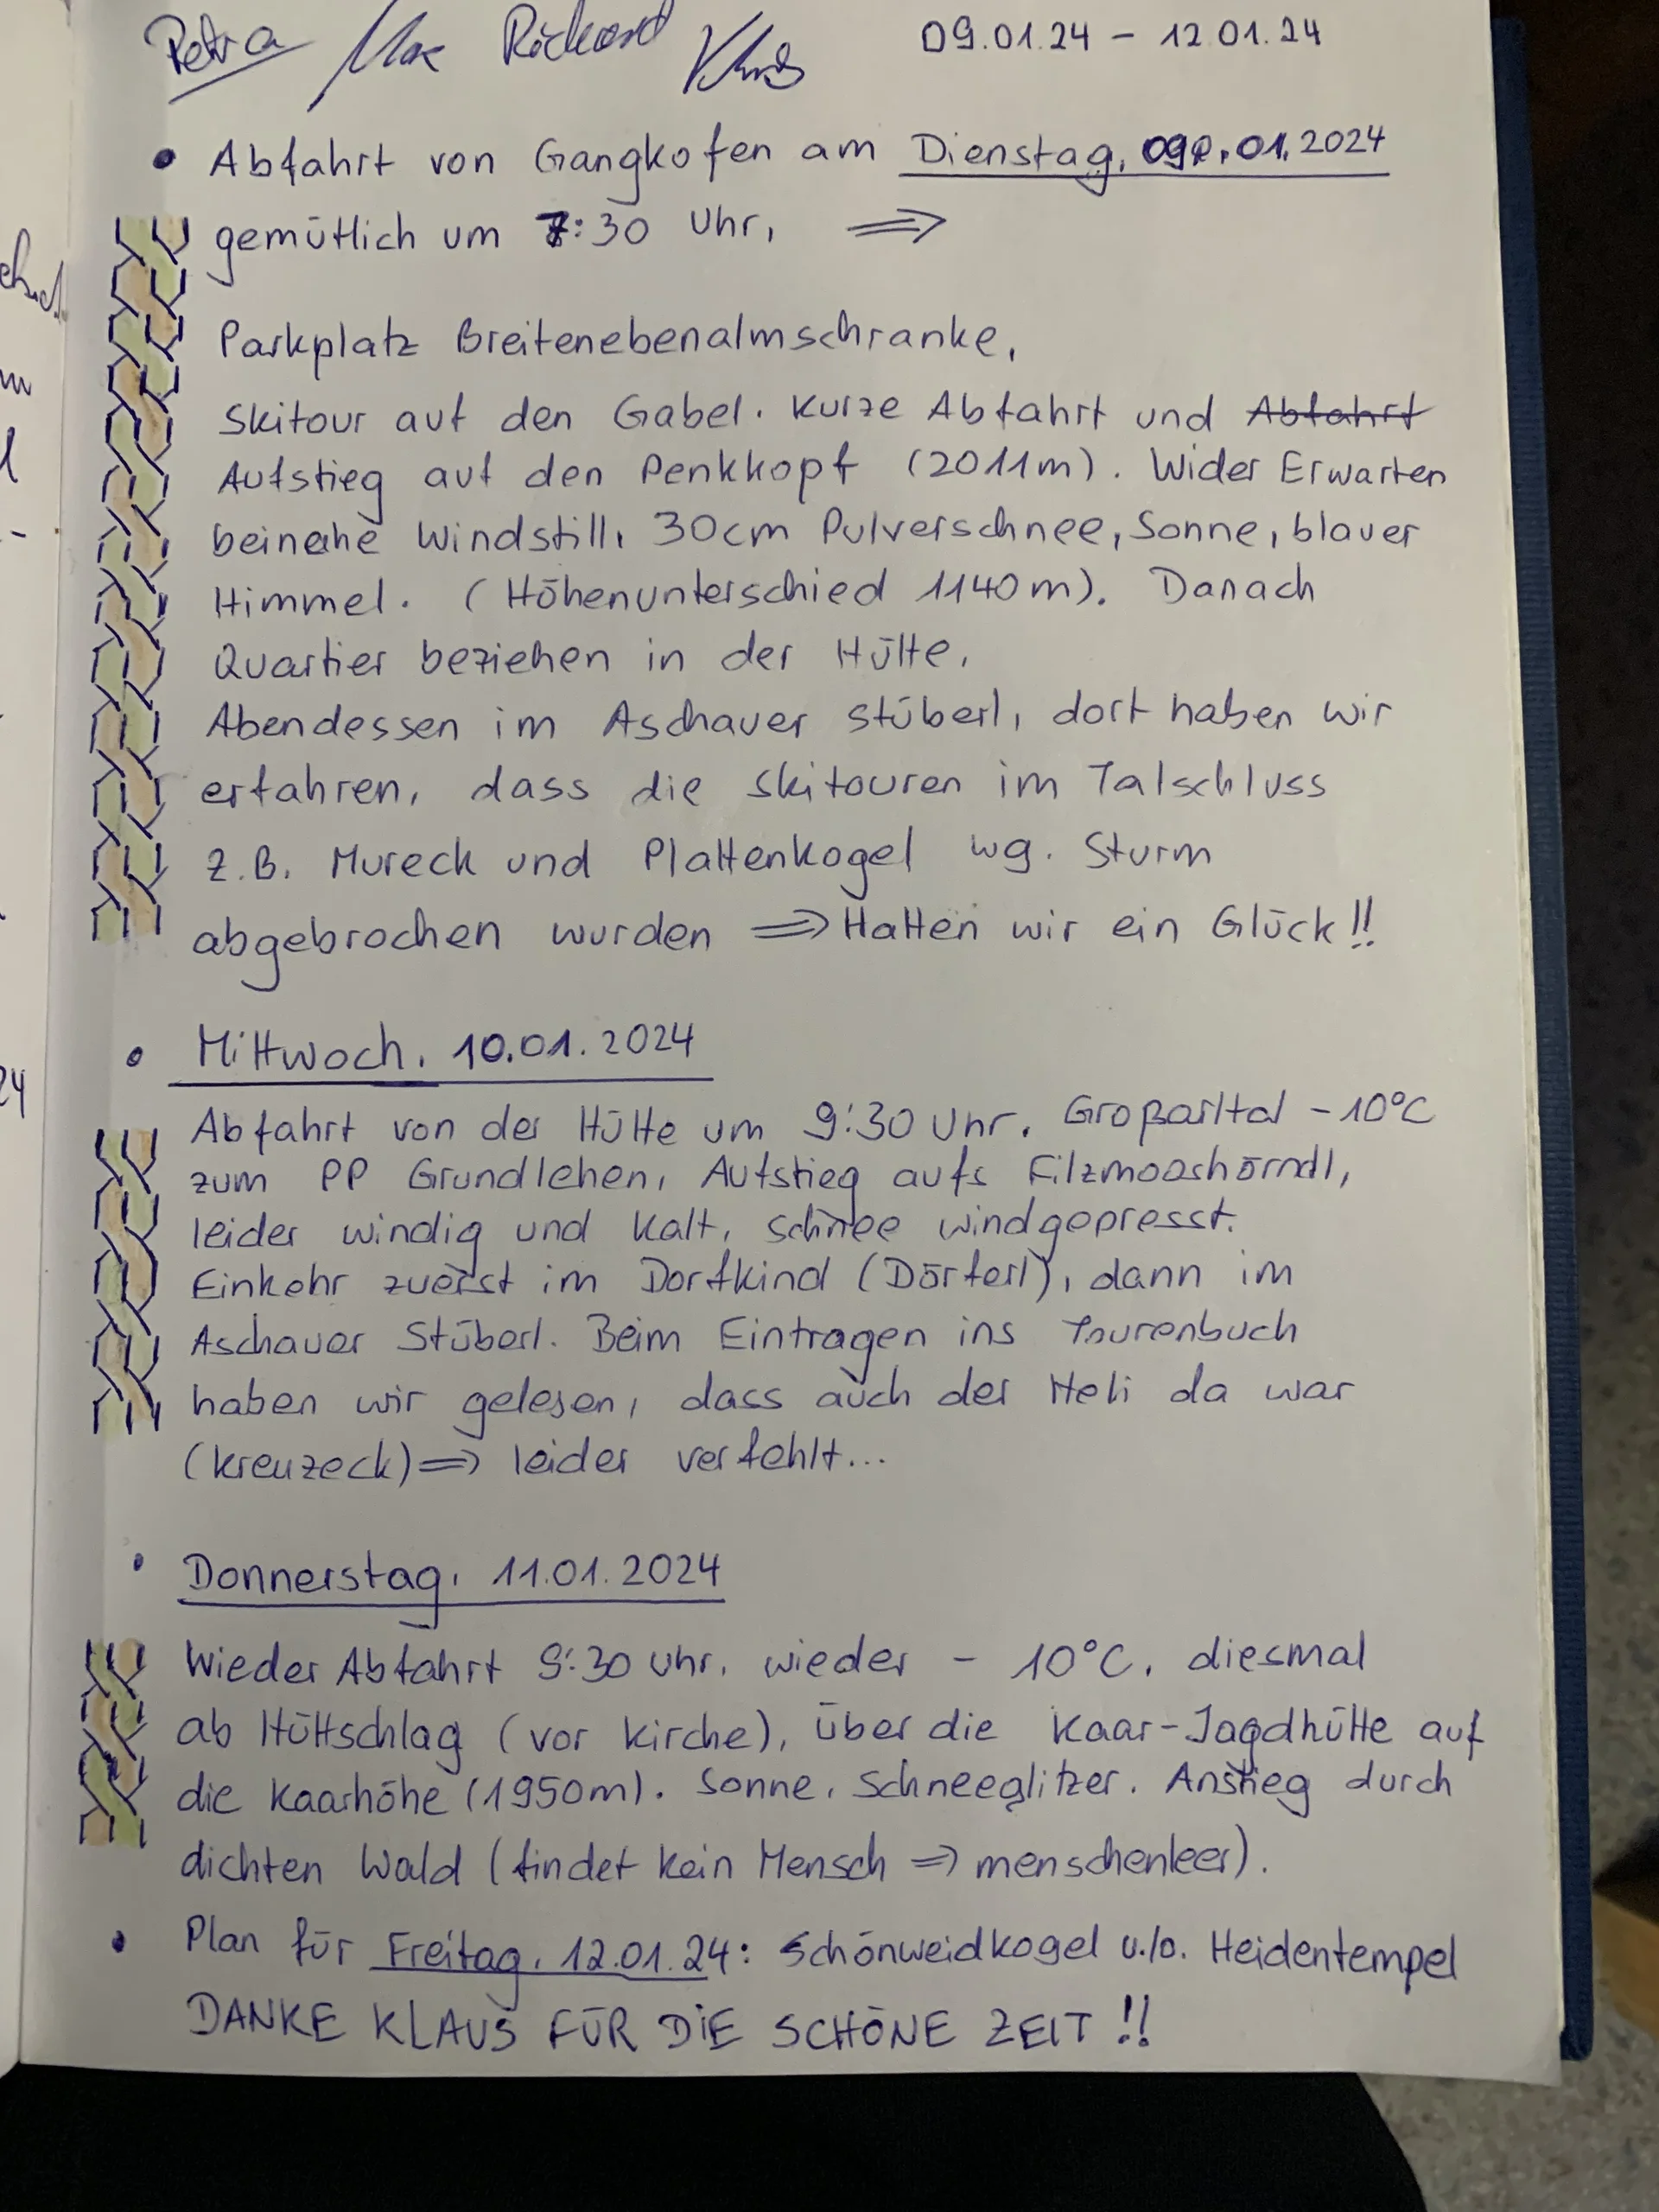 Petra Max Richard Klaus 09.01.24 - 12.01.24
• Abfahrt von Gangkofen am Dienstag, 09.01.2024
gemütlich um 7:30 Uhr, ⇒
Parkplatz Breitenebenalmschranke,
Skitour auf den Gabel. Kurze Abfahrt und Abfahrt
Aufstieg auf den Penkkopf (2011m). Wider Erwarten
beinahe Windstill, 30cm Pulverschnee, Sonne, blauer
Himmel. (Höhenunterschied 1140m). Danach
Quartier beziehen in der Hütte,
Abendessen im Aschauer Stüberl, dort haben wir
erfahren, dass die Skitouren im Talschluss
z.B. Mureck und Plattenkogel wg. Sturm
abgebrochen wurden ⇒ Hatten wir ein Glück!!
• Mittwoch, 10.01.2024
Abfahrt von der Hütte um 9:30 Uhr, Großarltal -10°C
zum PP Grundlehen, Aufstieg aufs Filzmooshörndl,
leider windig und kalt, Schnee windgepresst.
Einkehr zuerst im Dorfkind (Dörferl), dann im
Aschauer Stüberl. Beim Eintragen ins Tourenbuch
haben wir gelesen, dass auch der Heli da war
(Kreuzeck) ⇒ leider verfehlt...
• Donnerstag, 11.01.2024
Wieder Abfahrt 9:30 Uhr, wieder - 10°C, diesmal
ab Hüttschlag (vor Kirche), über die Kaar-Jagdhütte auf
die Kaarhöhe (1950m). Sonne, Schneeglitzer. Anstieg durch
dichten Wald (findet kein Mensch ⇒ menschenleer).
• Plan für Freitag, 12.01.24: Schönweidkogel u./o. Heidentempel
DANKE KLAUS FÜR DIE SCHÖNE ZEIT !!